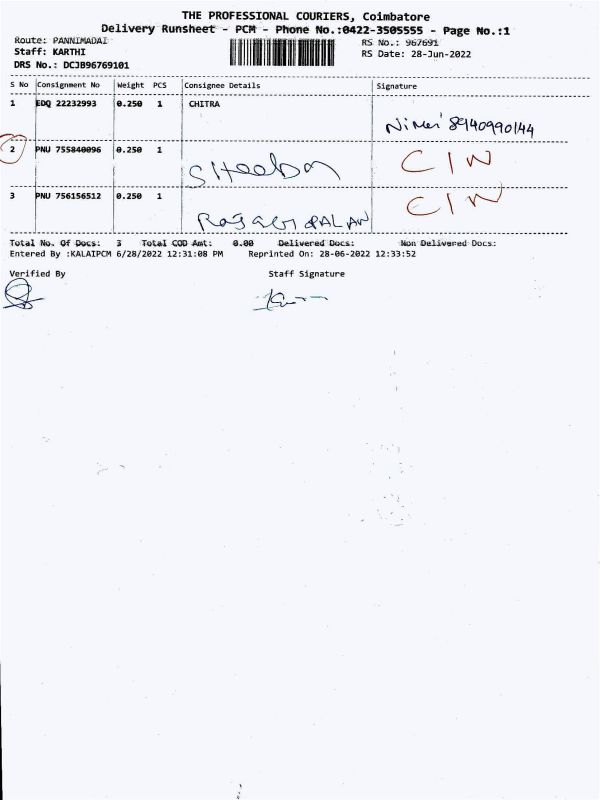 THE PROFESSIONAL COURIERS, Coimbatore
Delivery Runsheet - PCM - Phone No.:0422-3505555 - Page No.:1
Route: PANNIMADAI RS No.: 967691
Staff: KARTHI RS Date: 28-Jun-2022
DRS No.: DCJB96769101
S No Consignment No Weight PCS Consignee Details Signature
1 EDQ 22232993 0.250 1 CHITRA
8940990144
2 PNU 755840096 0.250 1 C I N
3 PNU 756156512 0.250 1 C I N
Total No. Of Docs: 3 Total COD Amt: 0.00 Delivered Docs: Non Delivered Docs:
Entered By :KALAIPCM 6/28/2022 12:31:08 PM Reprinted On: 28-06-2022 12:33:52
Verified By Staff Signature